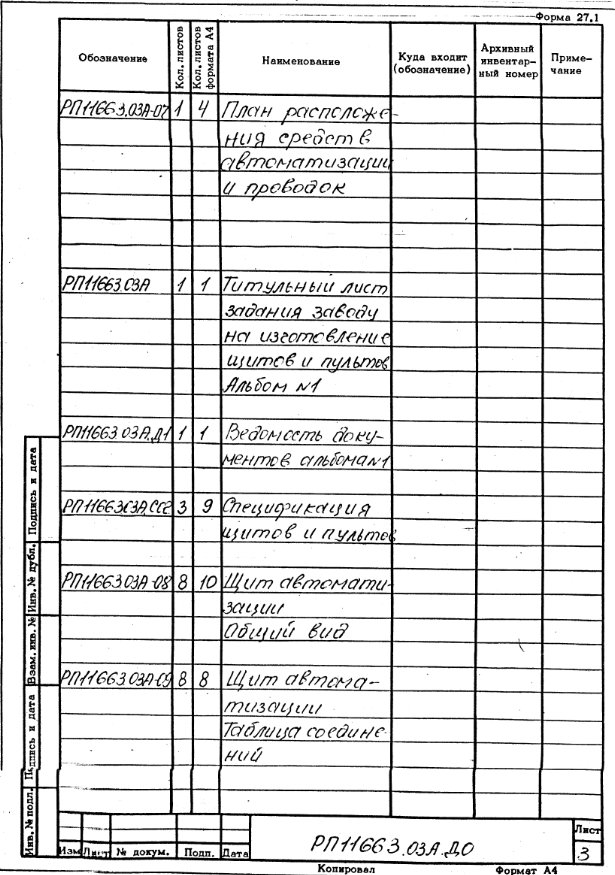 Форма 27.1
Обозначение
Кол. листов
Кол. листов формата А4
Наименование
Куда входит
(обозначение)
Архивный
инвентар-
ный номер
Приме-
чание
РП11663.03А-07 1 4 План расположе-
ния средств
автоматизации
и проводок
РП11663.03А 1 1 Титульный лист
задания заводу
на изготовление
щитов и пультов
Альбом №1
РП11663.03А.Д1 1 1 Ведомость доку-
ментов альбома №1
РП11663.03А.СС2 3 9 Спецификация
щитов и пультов
РП11663.03А-08 8 10 Щит автомати-
зации
Общий вид
РП11663.03А-09 8 8 Щит автома-
тизации
Таблица соедине-
ний
Инв. № подл.
Подпись и дата
Взам. инв. №
Инв. № дубл.
Подпись и дата
Изм Лист № докум. Подп. Дата
РП11663.03А.ДО
Лист
3
Копировал
Формат А4